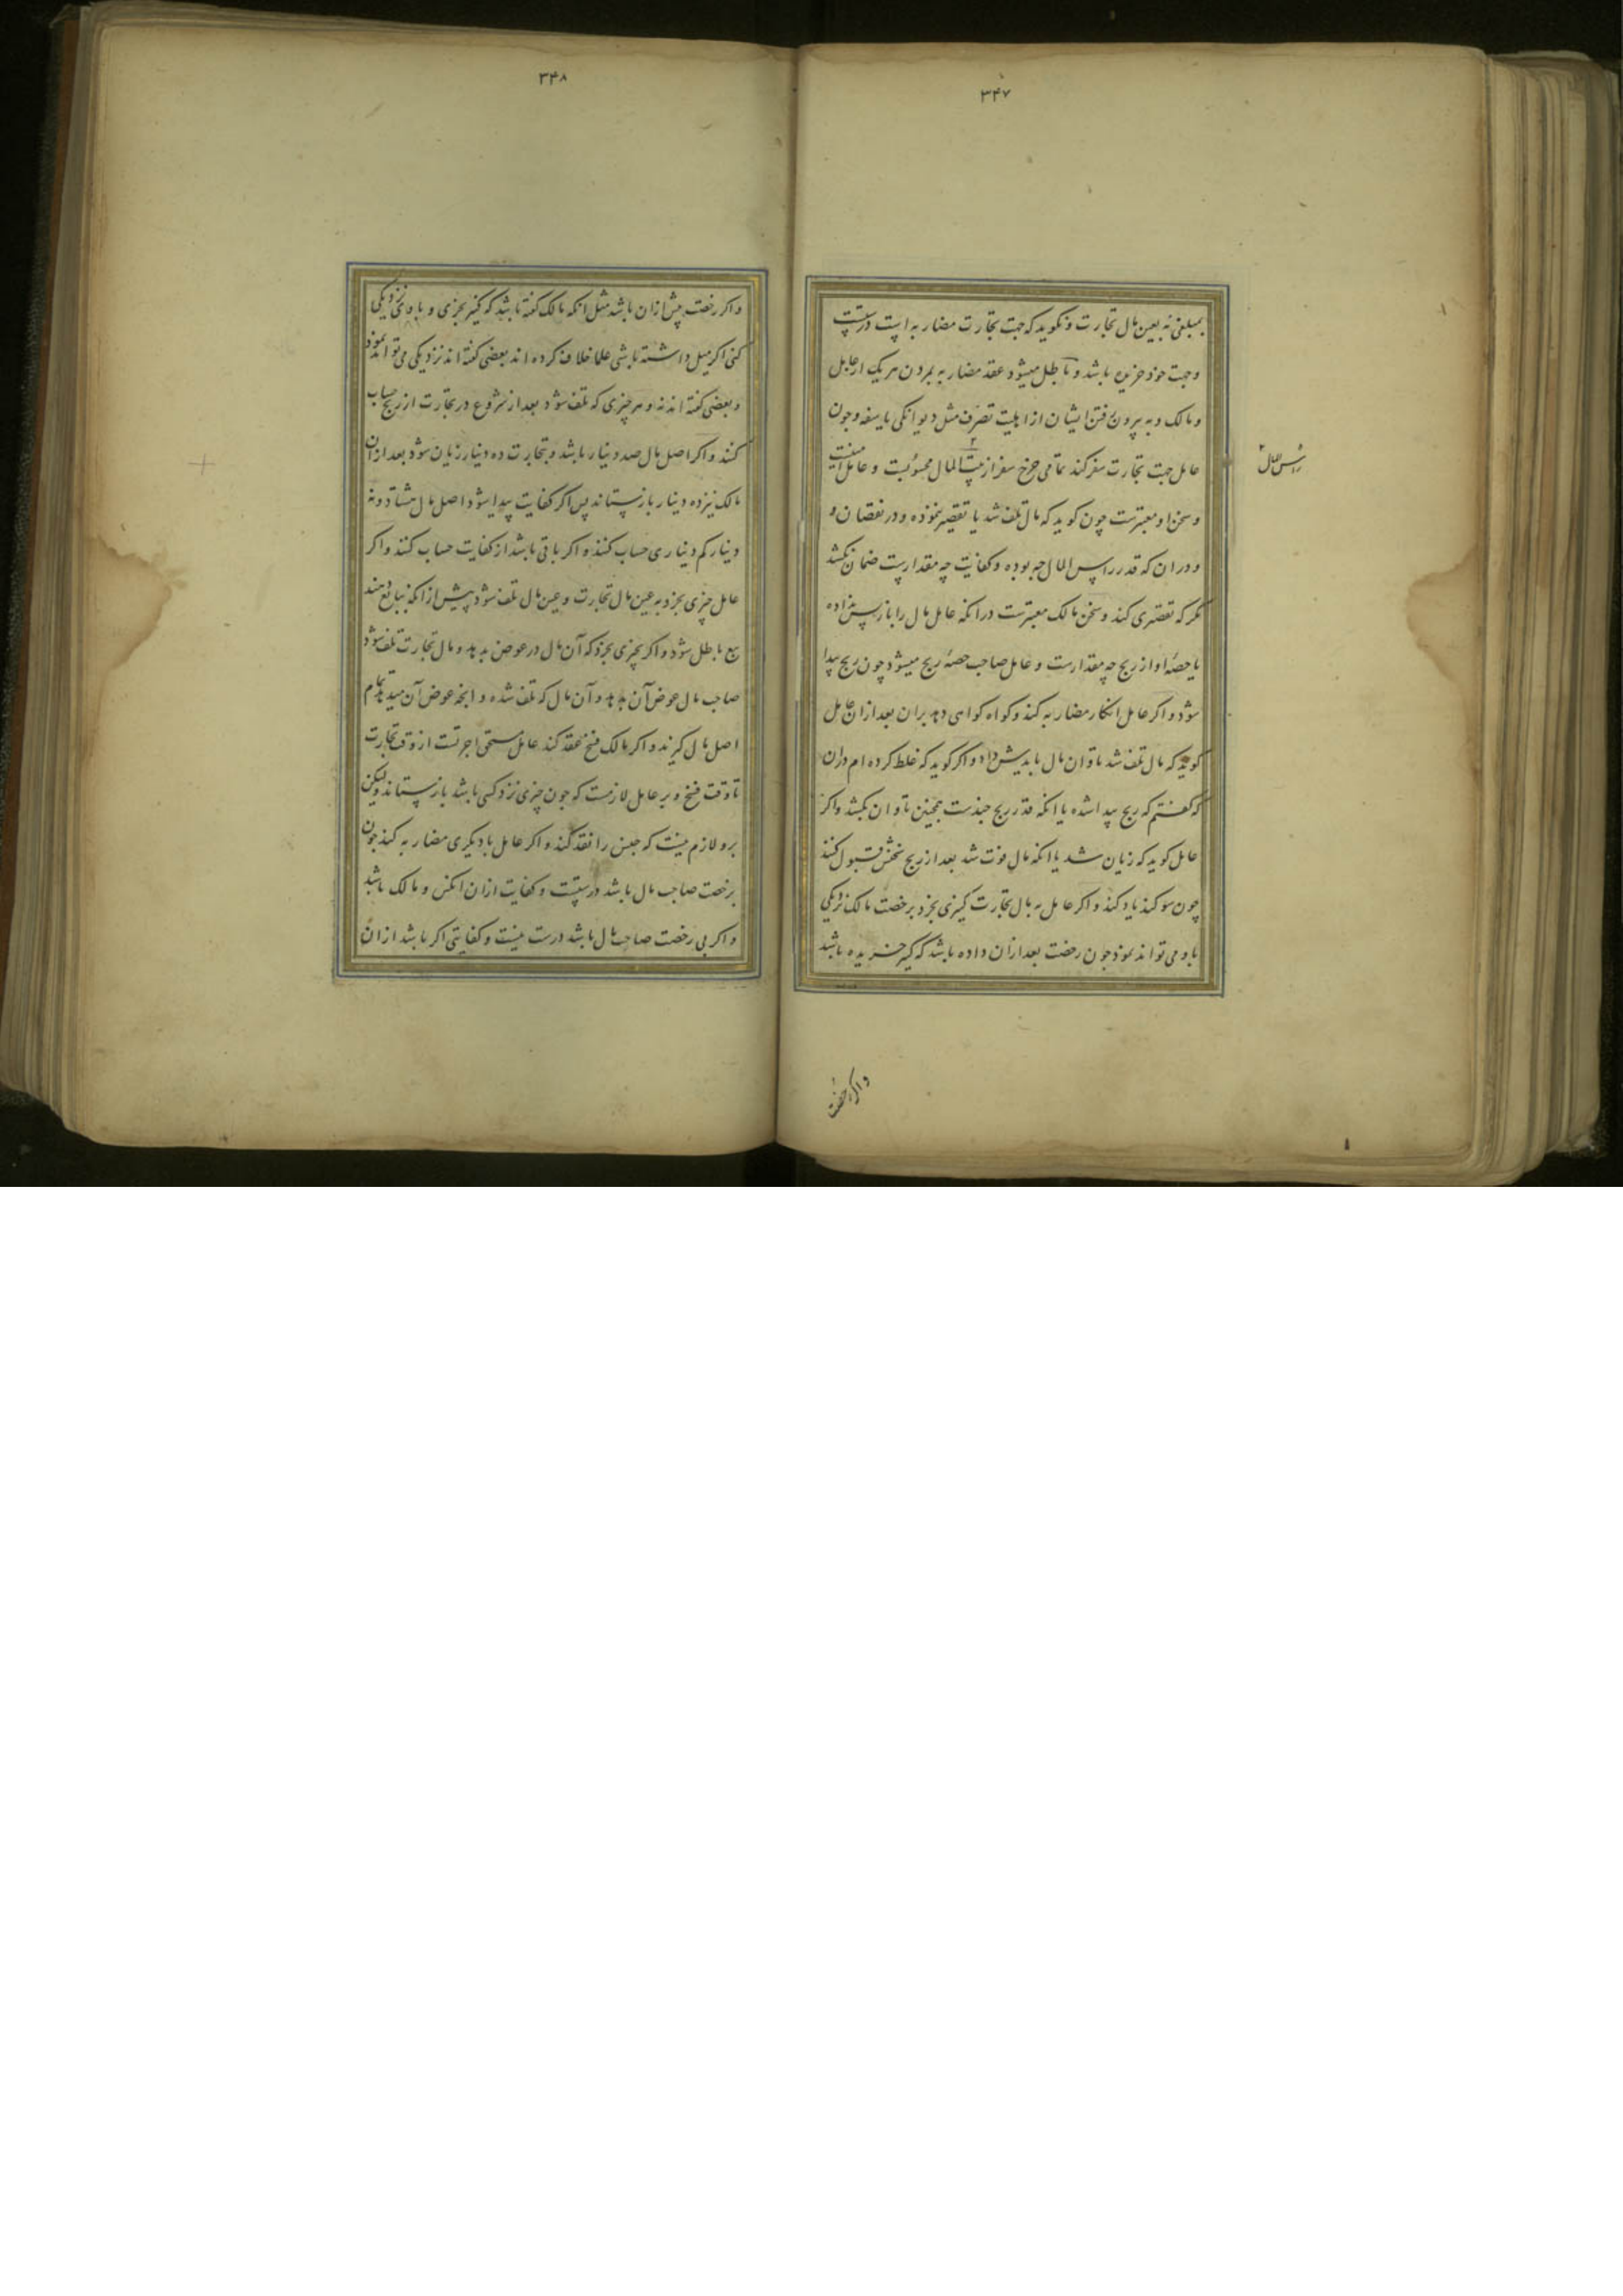 ۳۴۷
بمبلغی نه بعین مال تجارت و نکوید که جهت تجارت مضاربه است درستست
وجهت خود خریده باشد و باطل میشود عقد مضاربه بمردن هر یک از عامل
و مالک و به بیرون رفتن ایشان از اهلیت تصرف مثل دیوانکی یا سفه و جون
عامل جهت تجارت سفر کند تمامی خرج سفر از بیت المال محسوبست و عامل امینست
راس المال
و سخن او معتبرست چون کوید که مال تلف شد یا تقصیر ننموده و در نقصان و
و در ان که قدر راس المال چه بوده و کفایت چه مقدارست ضمان نکشد
مکر که تقصیری کند و سخن مالک معتبرست در انکه عامل مال را باز پس نداده
یا حصهٔ او از ربح چه مقدارست و عامل صاحب حصهٔ ربح میشود چون ربح پیدا
شود و اکر عامل انکار مضاربه کند و کواه کواهی دهد بران بعد ازان عامل
کوید که مال تلف شد تاوان مال بایدش داد و اکر کوید که غلط کرده ام دران
که کفتم که ربح پیدا شده یا انکه قدر ربح چندست همچنین تاوان بکشد و اکر
عامل کوید که زیان شد یا انکه مال فوت شد بعد از ربح سخنش قبول کنند
چون سوکند یاد کند و اکر عامل به مال تجارت کنیزی بخرد برخصت مالک نزدیکی
باو می تواند نمود جون رخصت بعد ازان داده باشد که کنیز خریده باشد
و اکر رخصت
۳۴۸
و اکر رخصت پیش ازان باشد مثل انکه مالک کفته باشد که کنیز بخری و با وی نزدیکی
کنی اکر میل داشته باشی علما خلاف کرده اند بعضی کفته اند نزدیکی می تواند نمود
و بعضی کفته اند نه و هر چیزی که تلف شود بعد از شروع در تجارت از ربح حساب
کنند و اکر اصل مال صد دینار باشد و بتجارت ده دینار زیان شود بعد ازان
مالک نیز ده دینار باز ستاند پس اکر کفایت پیدا شود اصل مال هشتاد و نه
دینار کم دیناری حساب کنند و اکر باقی باشد از کفایت حساب کنند و اکر
عامل چیزی بخرد به عین مال تجارت و عین مال تلف شود پیش از انکه ببایع دهند
بیع باطل شود و اکر بچیزی بخرد که آن مال در عوض بدهد و مال تجارت تلف شود
صاحب مال عوض آن بدهد و آن مال که تلف شده و انچه عوض آن میدهد تمام
اصل مال کیرند و اکر مالک فسخ عقد کند عامل مستحق اجرتست از وقت تجارت
تا وقت فسخ و بر عامل لازمست که جون چیزی نزد کسی باشد باز ستاند ولیکن
برو لازم نیست که جنس را نقد کند و اکر عامل با دیکری مضاربه کند جون
برخصت صاحب مال باشد درستست و کفایت ازان انکس و مالک باشد
و اکر بی رخصت صاحب مال باشد درست نیست و کفایتی اکر باشد ازان